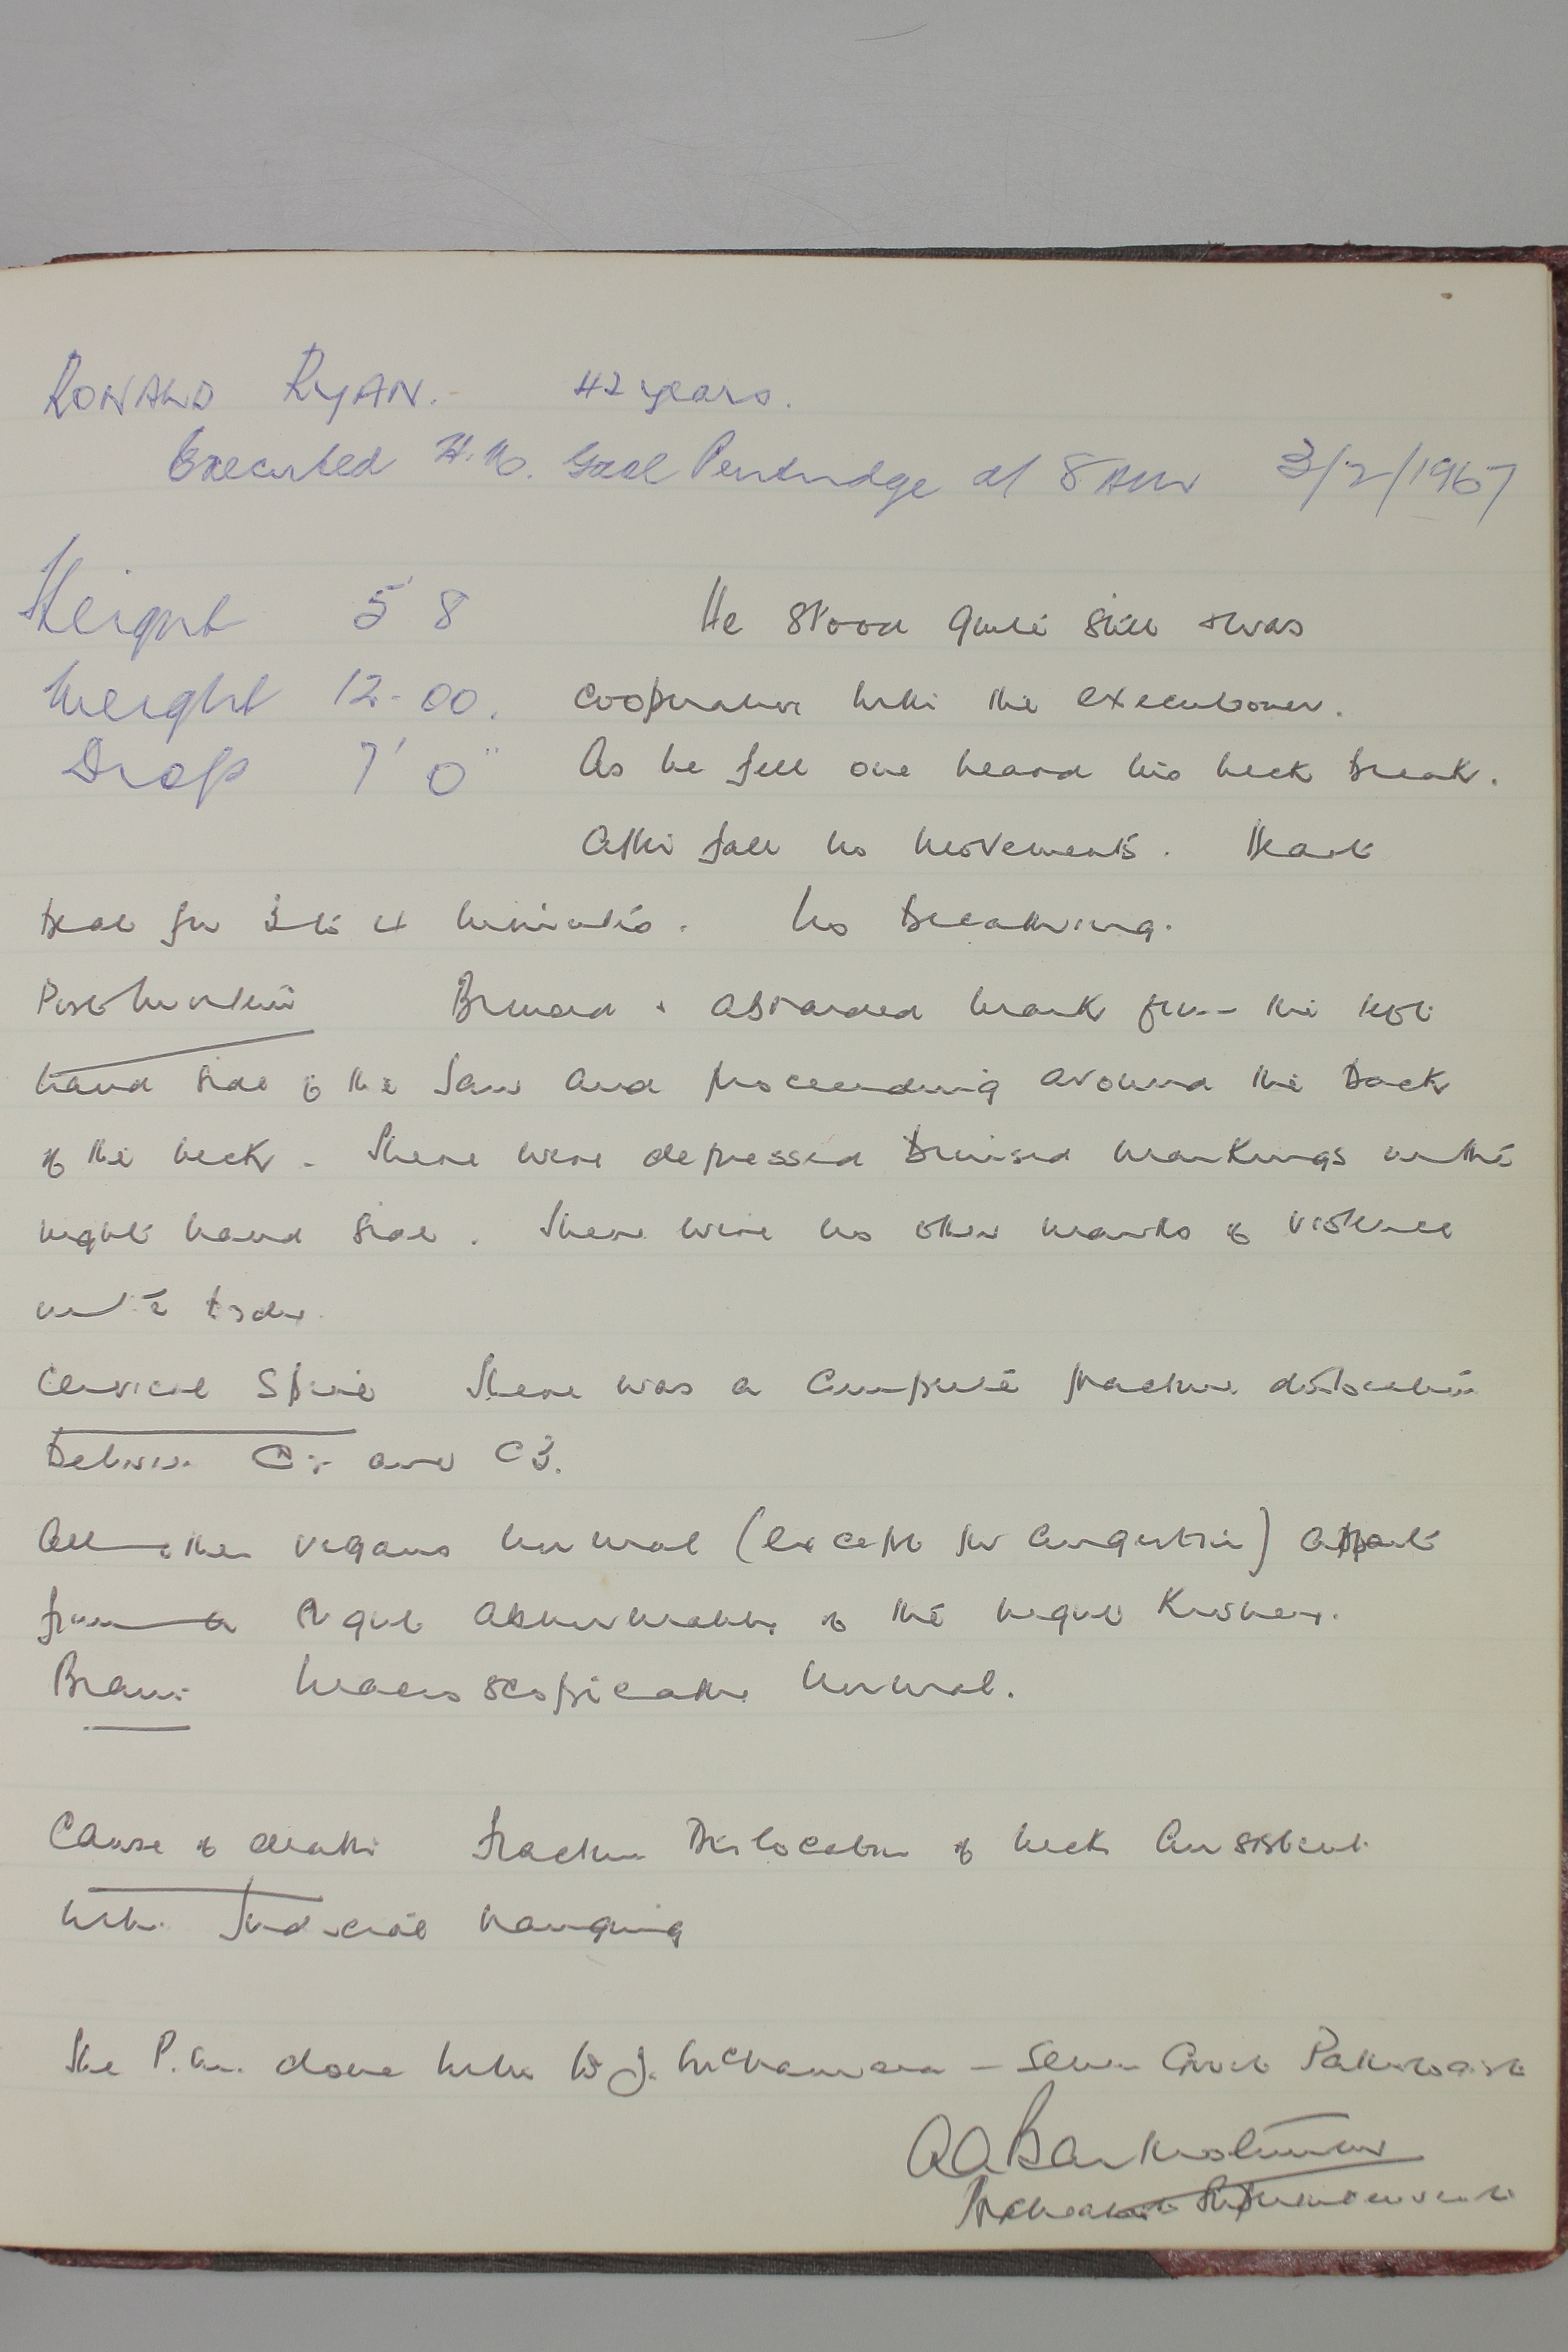 RONALD RYAN. 42 years.
Executed H.M. Gaol Pentridge at 8 AM 3/2/1967
Height 5' 8 He stood quite still & was
Weight 12-00. cooperative with the executioner.
Drop 7' 0" As he fell one heard his neck break.
After fall no movements. Heart
beat for 3 to 4 minutes. No breathing.
Post Mortem Bruised & abraided mark from the left
hand side of the jaw and proceeding around the back
of the neck. There were depressed bruised markings on the
right hand side. There were no other marks of violence
on the body.
Cervical Spine There was a complete fracture dislocation
between C2 and C3.
All other organs normal (except for congestion) apart
from a abnormality of the right kidney.
Brain Macroscopically normal.
Cause of death Fracture Dislocation of neck consistent
with Judicial hanging
The P.M. done with Dr J. McNamara - Senior Govt Pathologist